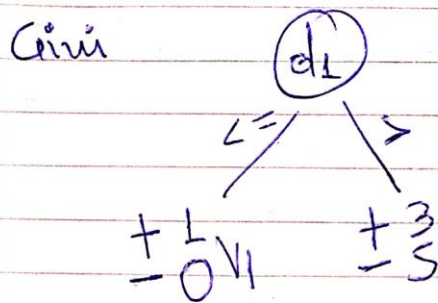 Gini
d1
<= >
+ 1 + 3
- 0 V1 - 5